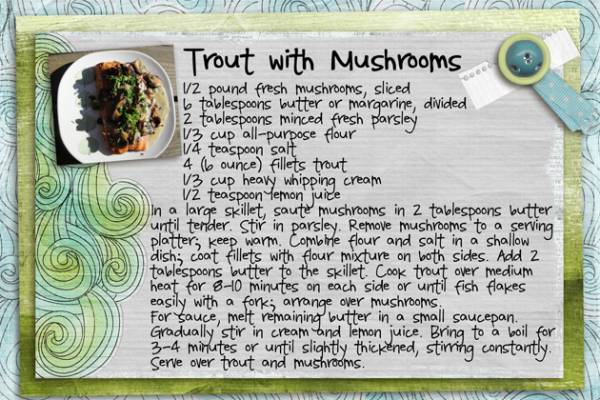 Trout with Mushrooms
1/2 pound fresh mushrooms, sliced
6 tablespoons butter or margarine, divided
2 tablespoons minced fresh parsley
1/3 cup all-purpose flour
1/4 teaspoon salt
4 (6 ounce) fillets trout
1/3 cup heavy whipping cream
1/2 teaspoon lemon juice
In a large skillet, saute mushrooms in 2 tablespoons butter
until tender. Stir in parsley. Remove mushrooms to a serving
platter; keep warm. Combine flour and salt in a shallow
dish; coat fillets with flour mixture on both sides. Add 2
tablespoons butter to the skillet. Cook trout over medium
heat for 8-10 minutes on each side or until fish flakes
easily with a fork; arrange over mushrooms.
For sauce, melt remaining butter in a small saucepan.
Gradually stir in cream and lemon juice. Bring to a boil for
3-4 minutes or until slightly thickened, stirring constantly.
Serve over trout and mushrooms.